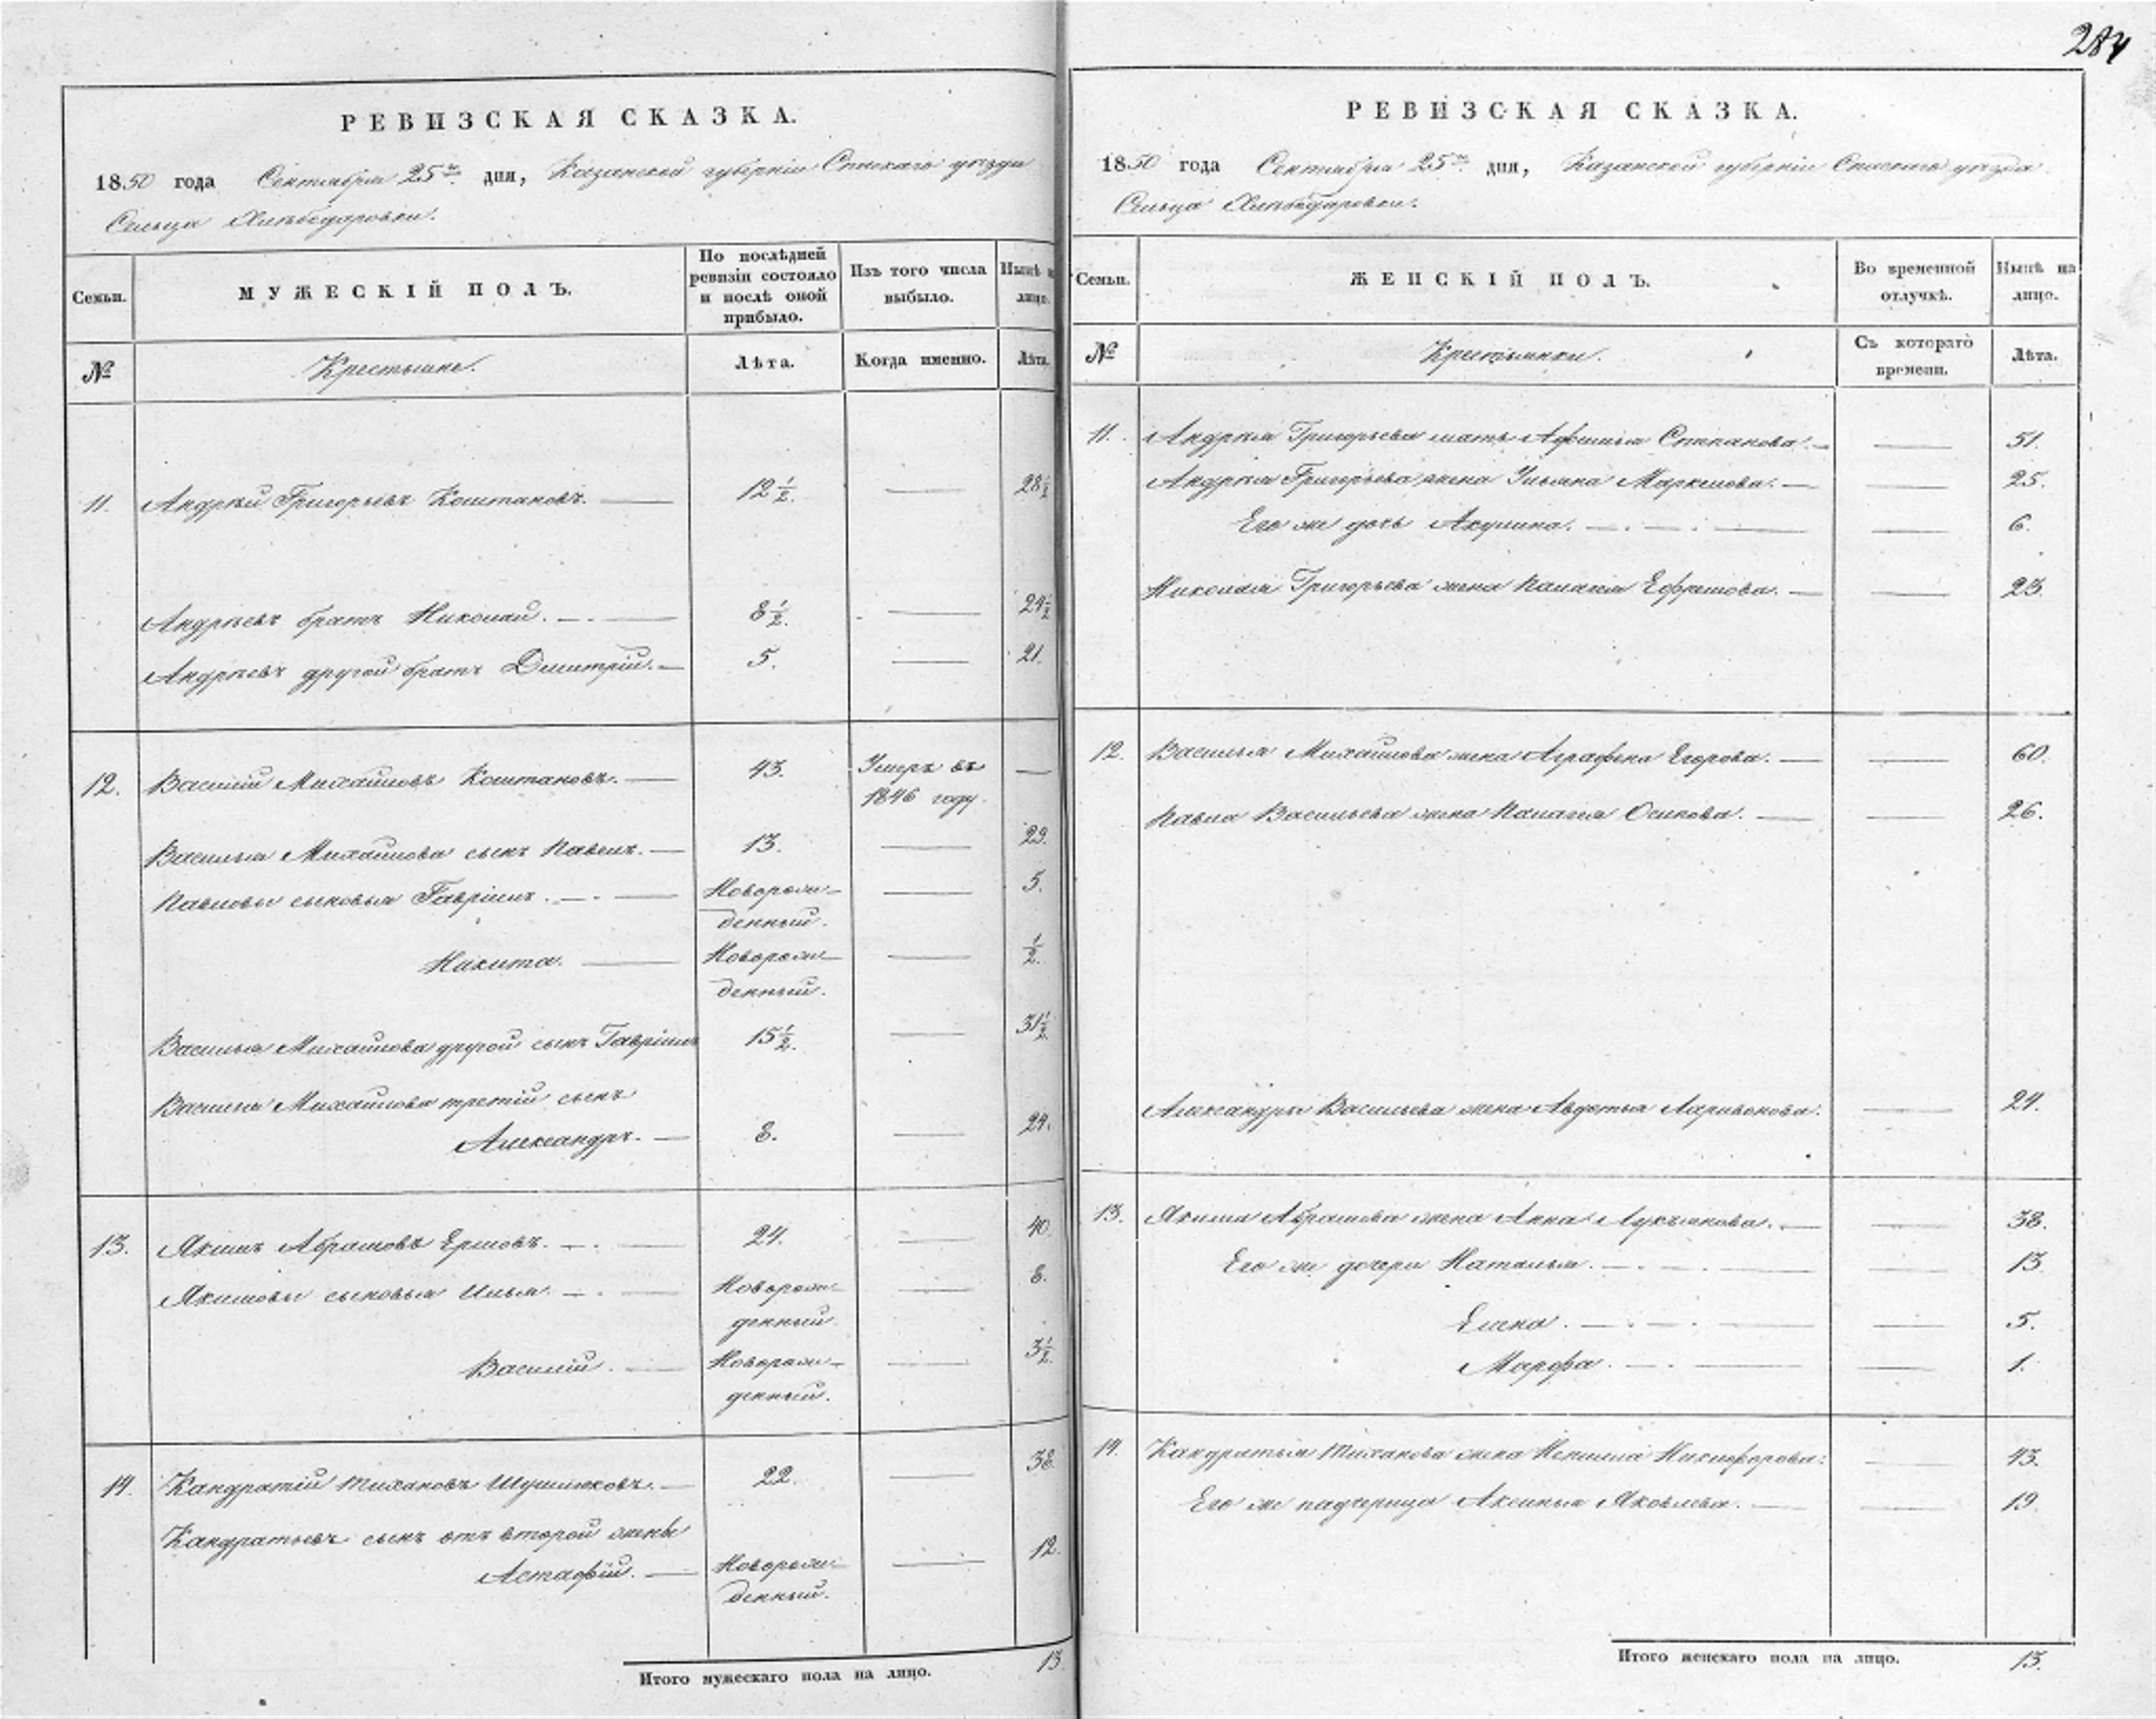 284
РЕВИЗСКАЯ СКАЗКА.
1850 года Сентября 25го дня, Казанской губерніи Спаскаго уѣзда
Сельца Хлѣбодаровки.
Семьи.
МУЖЕСКІЙ ПОЛЪ.
По послѣдней ревизіи состояло и послѣ оной прибыло.
Изъ того числа выбыло.
Нынѣ на лицо.
№
Крестьяне.
Лѣта.
Когда именно.
Лѣта.
11. Андрѣй Григорьевъ Коштановъ. 12 1/2. 28 1/2
Андрѣевъ братъ Николай. 8 1/2. 24 1/2
Андрѣевъ другой братъ Дмитрій. 5. 21.
12. Василій Михайловъ Коштановъ. 43. Умеръ въ
1846 году.
Василья Михайлова сынъ Павелъ. 13. 29.
Павловы сыновья Гавріилъ. Новорож-
денный. 5.
Никита. Новорож-
денный. 1/2.
Василья Михайлова другой сынъ Гавріилъ 15 1/2. 31 1/2.
Василья Михайлова третій сынъ
Александръ. 8. 24.
13. Якимъ Абрамовъ Ершовъ. 24. 40.
Якимовы сыновья Илья. Новорож-
денный. 8.
Василій. Новорож-
денный. 3 1/2.
14. Кандратій Тихановъ Шушляковъ. 22. 38.
Кандратьевъ сынъ отъ второй жены
Астафій. Новорож-
денный. 12.
Итого мужескаго пола на лицо. 13
РЕВИЗСКАЯ СКАЗКА.
1850 года Сентября 25го дня, Казанской губерніи Спаскаго уѣзда
Сельца Хлѣбодаровки.
Семьи.
ЖЕНСКІЙ ПОЛЪ.
Во временной отлучкѣ.
Нынѣ на лицо.
№
Крестьянки.
Съ котораго времени.
Лѣта.
11. Андрѣя Григорьева мать Афимья Степанова. 51.
Андрѣя Григорьева жена Ульяна Маркелова. 25.
Его же дочь Акулина. 6.
Николая Григорьева жена Палагея Ефремова. 23.
12. Василья Михайлова жена Аграфена Егорова. 60.
Павла Васильева жена Палагея Осипова. 26.
Александры Васильева жена Авдотья Ларивонова. 24.
13. Якима Абрамова жена Анна Лукьянова. 38.
Его же дочери Наталья. 13
Елена. 5.
Марфа. 1.
14. Кандратья Тиханова жена Никифорова. 43.
Его же падчерица Аксинья Яковлева. 19.
Итого женскаго пола на лицо. 13.